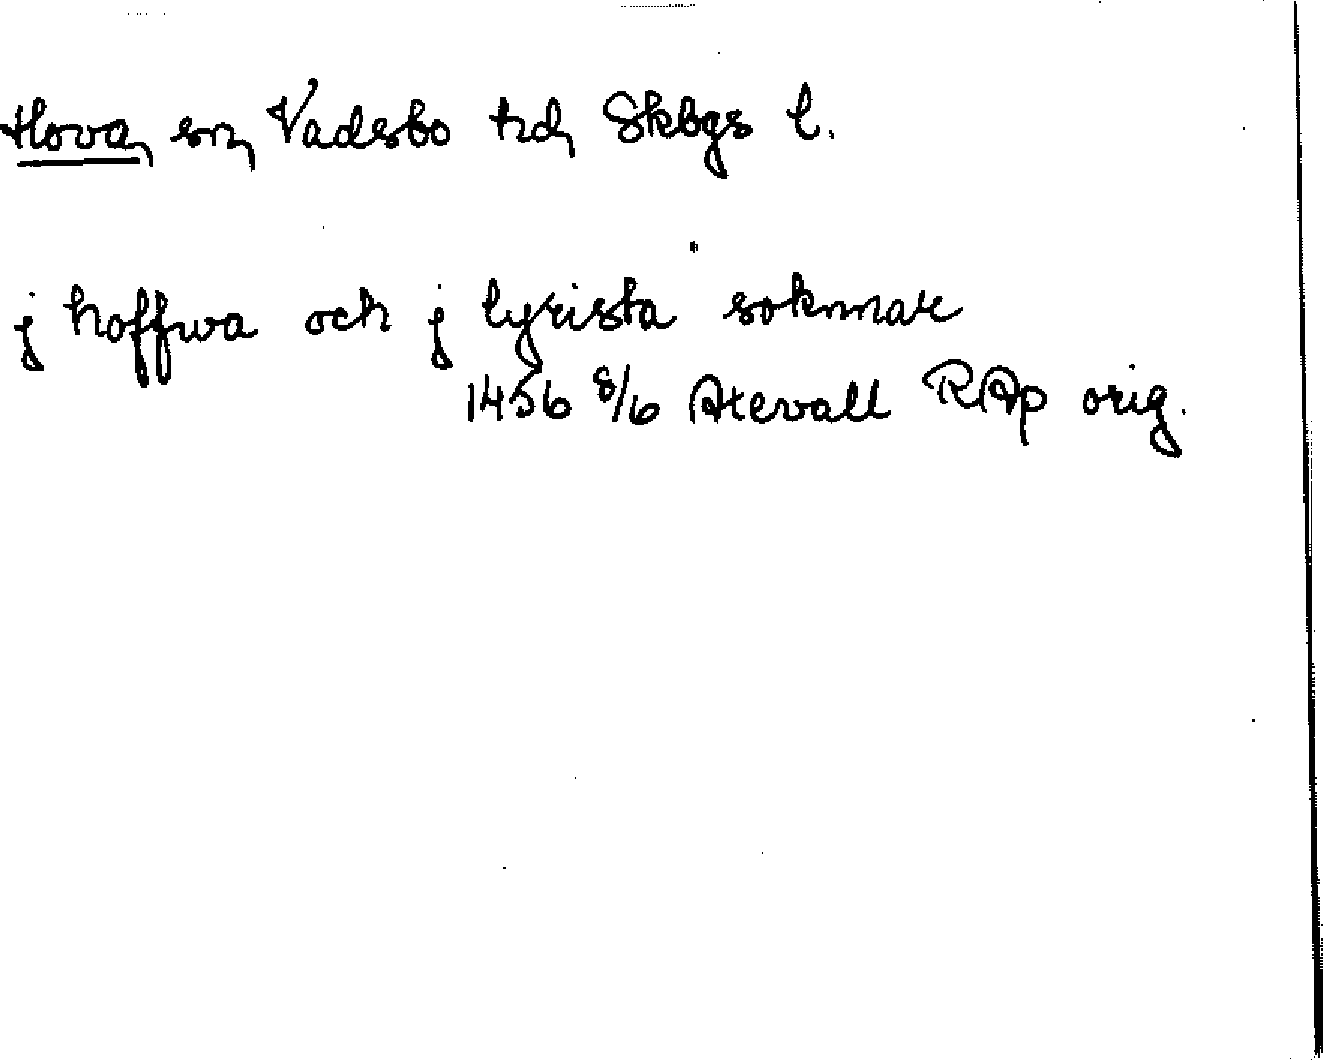 Hova, sn, Vadsbo hd, Skbgs l.
j hoffwa och j lyrista soknnar
1456 8/6 Atevall RAp orig.